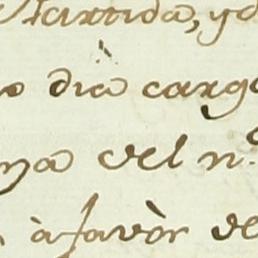 Partida, y d
o dia cargo
ya del n.º
à favòr de